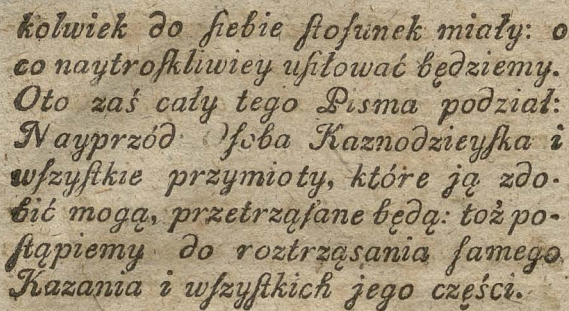 kolwiek do ſiebie ſtoſunek miały: o
co naytroſkliwiey uſiłować będziemy.
Oto zaś cały tego Pisma podział:
Nayprzód ſoba Kaznodzieyſka i
wſzyſtkie przymioty, które ją zdo-
bić mogą, przetrząſane będą: toż po-
ſtąpiemy do roztrząsania ſamego
Kazania i wſzyſtkich jego części.